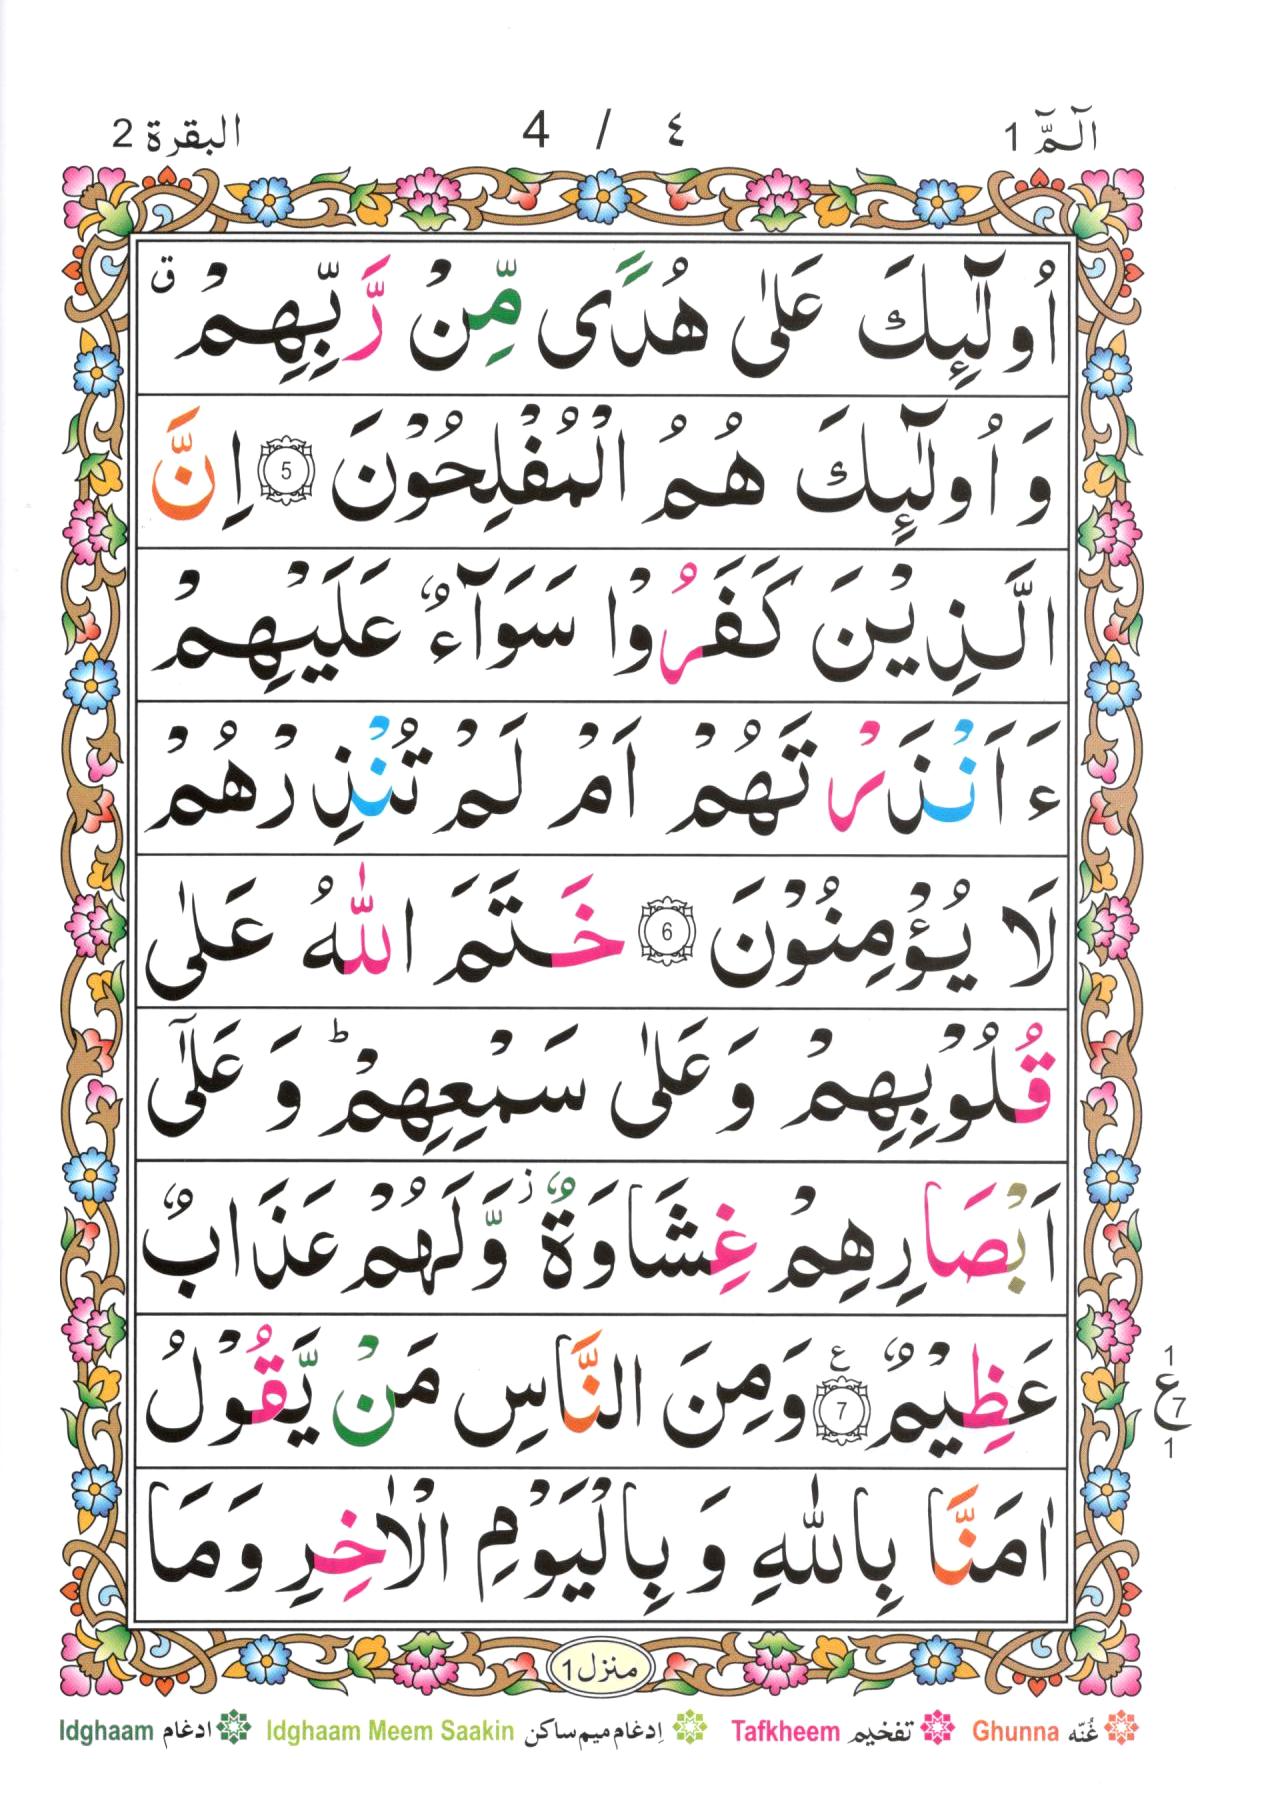 الٓمّٓ 1    ٤ / 4    البقرة 2
اُولٰٓئِكَ عَلٰى هُدًى مِّنْ رَّبِّهِمْ ق
وَ اُولٰٓئِكَ هُمُ الْمُفْلِحُوْنَ 5 اِنَّ
الَّذِيْنَ كَفَرُوْا سَوَآءٌ عَلَيْهِمْ
ءَاَنْذَرْتَهُمْ اَمْ لَمْ تُنْذِرْهُمْ
لَا يُؤْمِنُوْنَ 6 خَتَمَ اللّٰهُ عَلٰى
قُلُوْبِهِمْ وَعَلٰى سَمْعِهِمْ ؕ وَ عَلٰٓى
اَبْصَارِهِمْ غِشَاوَةٌ ز وَّلَهُمْ عَذَابٌ
عَظِيْمٌ 7 ع وَمِنَ النَّاسِ مَنْ يَّقُوْلُ
1
ع
7
1
اٰمَنَّا بِاللّٰهِ وَ بِالْيَوْمِ الْاٰخِرِ وَمَا
منزل 1
غُنّه Ghunna تفخيم Tafkheem اِدغام ميم ساكن Idghaam Meem Saakin ادغام Idghaam